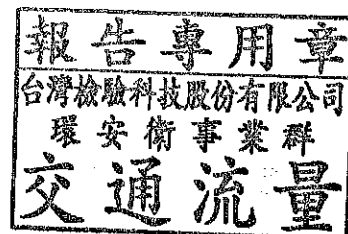 報告專用章
台灣檢驗科技股份有限公司
環安衛事業群
交通流量